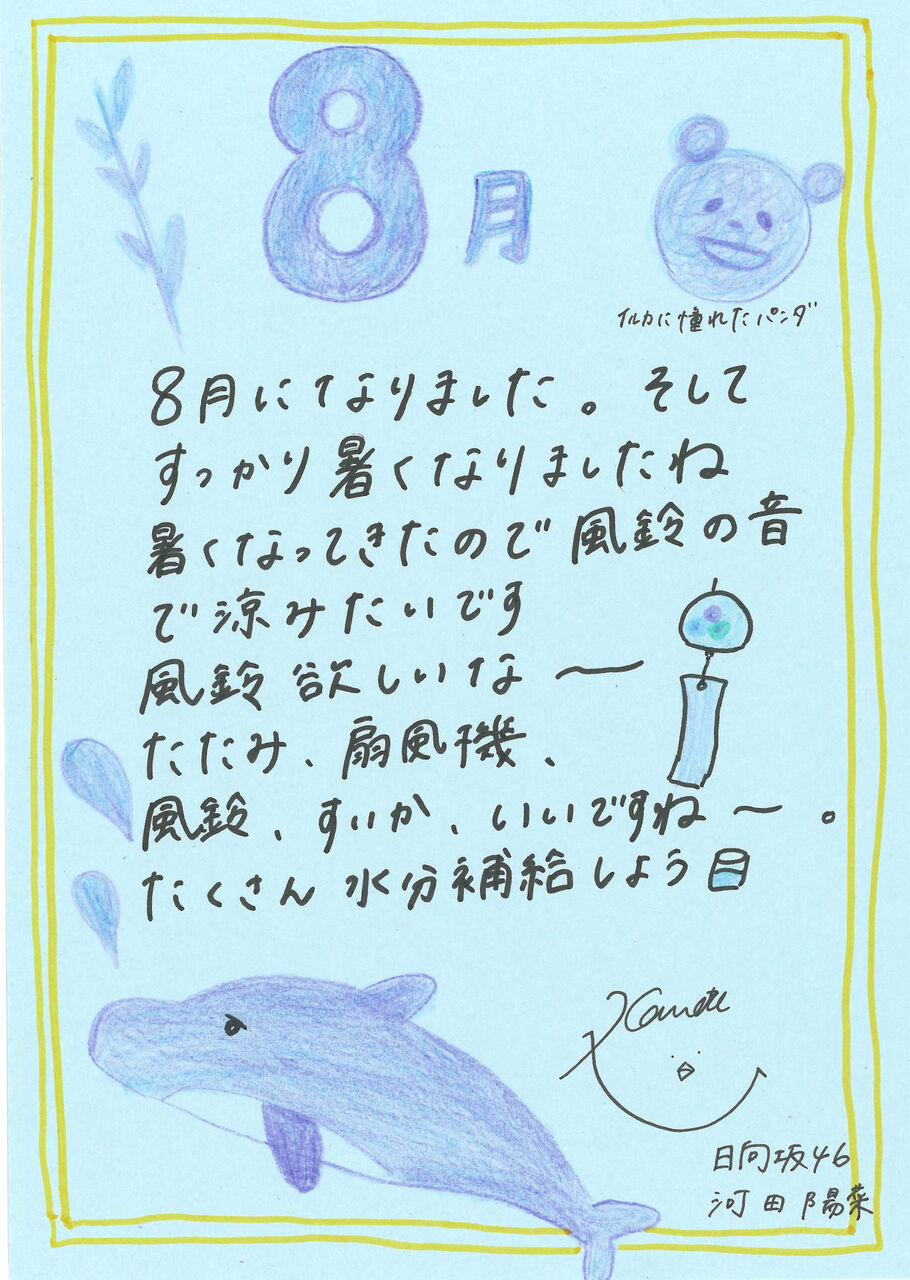 8月
イルカに憧れたパンダ
8月になりました。そして
すっかり暑くなりましたね
暑くなってきたので風鈴の音
で涼みたいです
風鈴欲しいな〜
たたみ、扇風機、
風鈴、すいか、いいですね〜。
たくさん水分補給しよう
日向坂46
河田陽菜